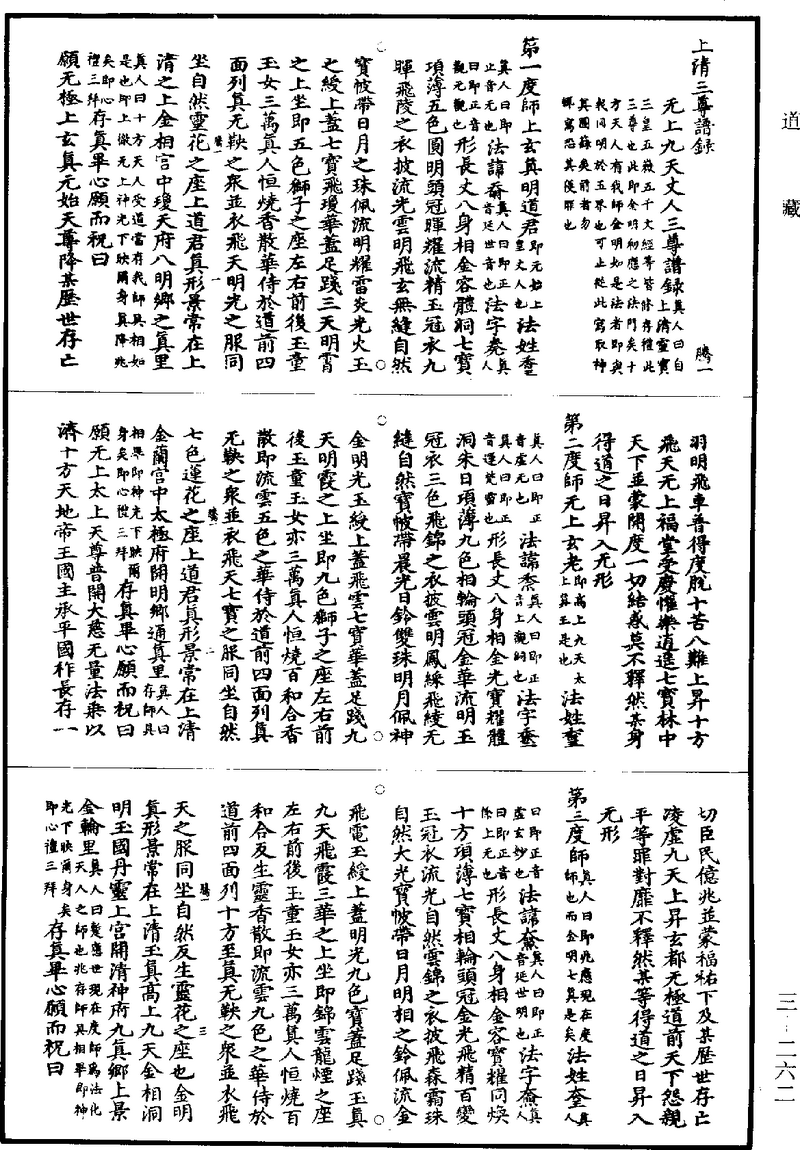 道藏
上清三尊譜錄 騰一
无上九天丈人三尊譜錄真人曰自上清靈寶
三皇五嶽五千文經等皆備存禮此
三尊也此即金明初應之法門矣十
方天人有我師金明知是法者即與
我同明於玉界也可止從此寫取神
真圖錄矣前者勿
輒寫恐其侵罪也
第一度師上玄真明道君即元始上皇丈人也法姓
真人曰即正音无也法諱真人曰即正音延世音也法字真人
曰即正音觀元觀也形長丈八身相金容體洞七寶
項薄五色圓明頭冠暉耀流精玉冠衣九
暉飛陵之衣披流光雲明飛玄無縫自然
寶帔帶日月之珠佩流明耀雷炎光火玉
之綬上蓋七寶飛瓊華蓋足踐三天明霄
之上坐即五色獅子之座左右前後玉童
玉女三萬真人恒燒香散華侍於道前四
面列真无鞅之衆並衣飛天明光之服同
坐自然靈花之座上道君真形景常在上
清之上金相宮中瓊天府八明鄉之真里
真人曰十方天人受道當存我師具相如
是也即上徹无上神光下映爾身真降兆
矣即心禮三拜存真畢心願而祝曰
願无極上玄真元始天尊降某歷世存亡
羽明飛車普得度脫十苦八難上昇十方
飛天无上福堂受慶懽樂逍遙七寶林中
天下並蒙開度一切結惑莫不釋然某身
得道之日昇入无形
第二度師无上玄老即高上九天太上真王是也法姓
真人曰即正音虛无也法諱真人曰即正音上觀洞也法字
真人曰即正音運梵寶也形長丈八身相金光寶耀體
洞朱日項薄九色相輪頭冠金華流明玉
冠衣三色飛錦之衣披雲明鳳綵飛綾无
縫自然寶帔帶晨光日鈴雙珠明月佩神
金明光玉綬上蓋飛雲七寶華蓋足踐九
天明霞之上坐即九色獅子之座左右前
後玉童玉女亦三萬真人恒燒百和合香
散即流雲五色之華侍於道前四面列真
无鞅之衆並衣飛天七寶之服同坐自然
七色蓮花之座上道君真形景常在上清
金蘭宮中太極府開明鄉通真里真人曰存師具
相畢即神光下映爾身矣即心禮三拜存真畢心願而祝曰
願无上太上天尊普開大慈无量法乘以
濟十方天地帝王國主承平國祚長存一
切臣民億兆並蒙福祐下及某歷世存亡
凌虛九天上昇玄都无極道前天下怨親
平等罪對靡不釋然某等得道之日昇入
无形
第三度師真人曰即兆應現在度師也而金明七真是矣法姓真人
曰即正音虛玄妙也法諱真人曰即正音延世明也法字真人
曰即正音除上元也形長丈八身相金容寶耀同煥
十方項薄七寶相輪頭冠金光飛精百變
玉冠衣流光自然雲錦之衣披飛森霜珠
自然大光寶帔帶日月明相之鈴佩流金
飛電玉綬上蓋明光九色寶蓋足踐玉真
九天飛霞三華之上坐即錦雲龍煙之座
左右前後玉童玉女亦三萬真人恒燒百
和合反生靈香散即流雲九色之華侍於
道前四面列十方至真无鞅之衆並衣飛
天之服同坐自然反生靈花之座也金明
真形景常在上清玉真高上九天金相洞
明玉國丹靈上宮開清神府九真鄉上景
金輪里真人曰變應世現在度師為法化天人之師也兆存師具相畢即神
光下映爾身矣即心禮三拜存真畢心願而祝曰
三一二六二